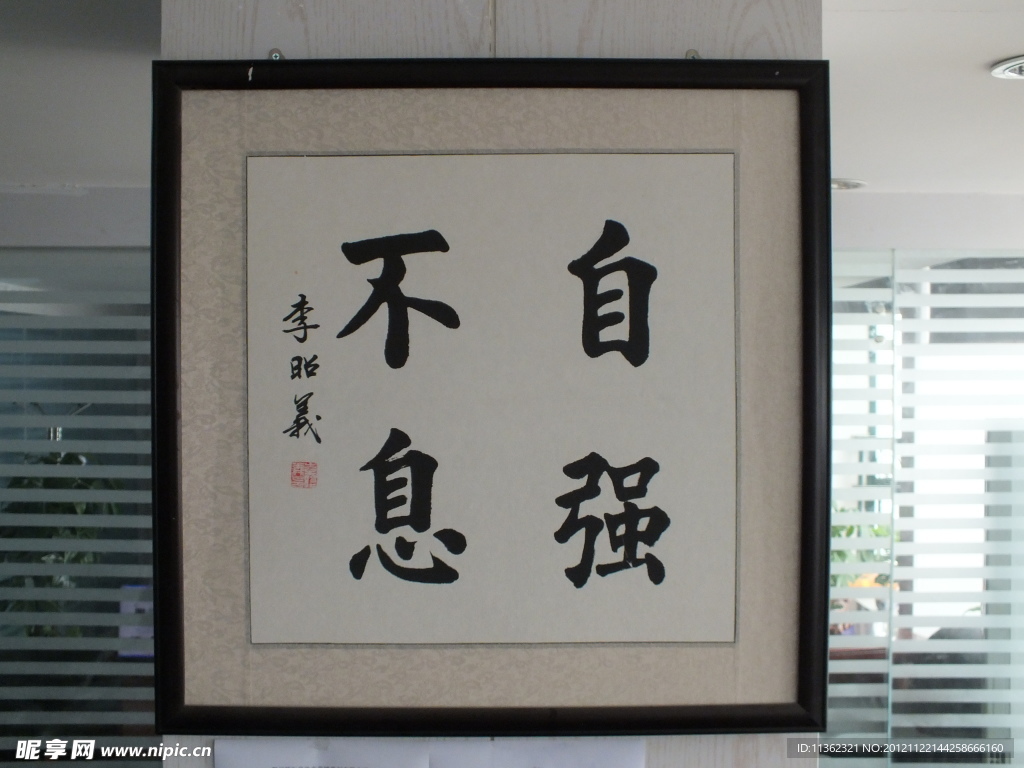 自强
不息
李昭義
昵享网 www.nipic.cn
ID:11362321 NO:20121122144258666160